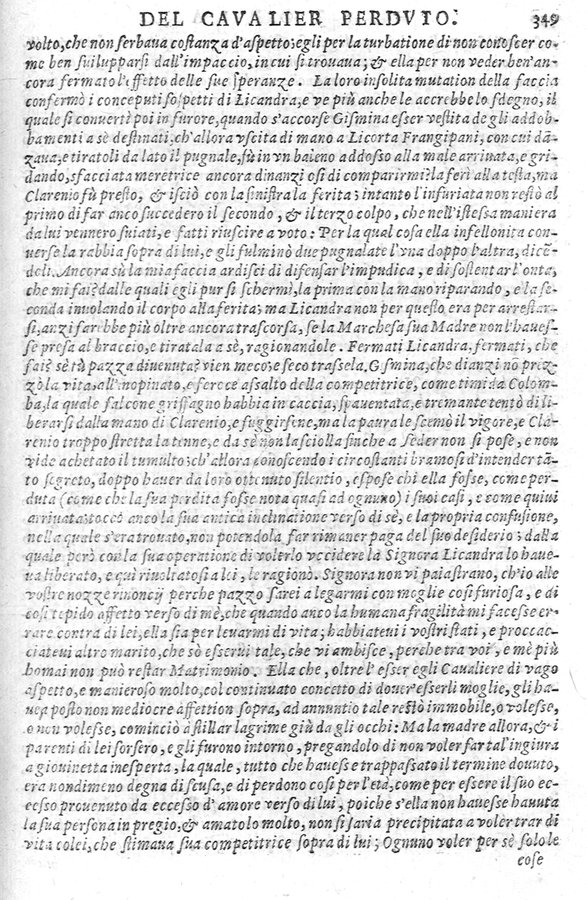 DEL CAVALIER PERDVTO. 349
volto, che non serbaua costanza d'aspetto; egli per la turbatione di non conoscer co-
me ben suilupparsi dall'impaccio, in cui si trouaua; & ella per non veder ben'an-
cora fermato l'effetto delle sue speranze. La loro insolita mutation della faccia
confermò i conceputi sospetti di Licandra, e ve più anche le accrebbe lo sdegno, il
quale si conuertì poi in furore, quando s'accorse Gismina esser vestita de gli addob-
bamenti a sè destinati, ch'allora vscita di mano a Licorta Frangipani, con cui dã-
zaua, e tiratoli da lato il pugnale, fù in vn baleno addosso alla male arriuata, e gri-
dando, sfacciata meretrice ancora dinanzi osi di comparirmi? la ferì alla testa, ma
Clarenio fù presto, & isciò con la sinistra la ferita; intanto l'infuriata non restò al
primo di far anco succedero il secondo, & il terzo colpo, che nell'istessa maniera
da lui vennero suiati, e fatti riuscire a voto: Per la qual cosa ella infellonita con-
uerse la rabbia sopra di lui, e gli fulminò due pugnalate l'vna doppo l'altra, dicẽ-
deli. Ancora sù la mia faccia ardisci di difensar l'impudica, e di sostentar l'onta,
che mi fai? dalle quali egli pur si schermì, la prima con la mano riparando, e la se-
conda inuolando il corpo alla ferita; ma Licandra non per questo era per arrestar-
si, anzi sarebbe più oltre ancora trascorsa, se la Marchesa sua Madre non l'hauess-
se presa al braccio, e tiratala a sè, ragionandole. Fermati Licandra, fermati, che
fai? se tù pazza diuenuta? vien meco; e seco trassela. Gismina, che dianzi nõ prez-
zò la vita, all'inopinato, e feroce assalto della competitrice, come timida Colom-
ba, la quale falcone griffagno habbia in caccia, spauentata, e tremante tentò di li-
berarsi dalla mano di Clarenio, e fuggirsene, ma la paura le scemò il vigore, e Cla-
renio troppo stretta la tenne, e da sè non lasciolla sinche a seder non si pose, e non
vide achetato il tumulto; ch'allora conoscendo i circostanti bramosi d'intender tã-
to segreto, doppo hauer da loro ottenuto silentio, espose chi ella fosse, come per-
duta (come che la sua perdita fosse nota quasi ad ognuno) i suoi casi, e come quiui
arriuata; toccò anco la sua antica inclinatione verso di sè, e la propria confusione,
nella quale s'era trouato, non potendola far rimaner paga del suo desiderio; dalla
quale però con la sua operatione di volerlo vccidere la Signora Licandra lo haue-
ua liberato, e quì riuoltatosi a lei, le ragionò. Signora non vi paia strano, ch'io alle
vostre nozze rinoncij perche pazzo sarei a legarmi con moglie così furiosa, e di
così tepido affetto verso di mè, che quando anco la humana fragilità mi facesse er-
rare contra di lei, ella sia per leuarmi di vita; habbiateui i vostri stati, e proccac-
ciateui altro marito, che sò esserui tale, che vi ambisce, perche tra voi, e mè più
homai non può restar Matrimonio. Ella che, oltre l'esser egli Caualiere di vago
aspetto, e manieroso molto, col continuato concetto di douer esserli moglie, gli ha-
uea posto non mediocre affettion sopra, ad annuntio tale restò immobile, o volesse,
o non volesse, cominciò a stillar lagrime giù da gli occhi: Ma la madre allora, & i
parenti di lei sorsero, e gli furono intorno, pregandolo di non voler far tal'ingiura
a giouinetta inesperta, la quale, tutto che hauesse trappassato il termine douuto,
era nondimeno degna di scusa, e di perdono così per l'età, come per essere il suo ec-
cesso prouenuto da eccesso d'amore verso di lui, poiche s'ella non hauesse hauuta
la sua persona in pregio, & amatolo molto, non si saria precipitata a voler trar di
vita colei, che stimaua sua competitrice sopra di lui; Ognuno voler per sè solo le
cose